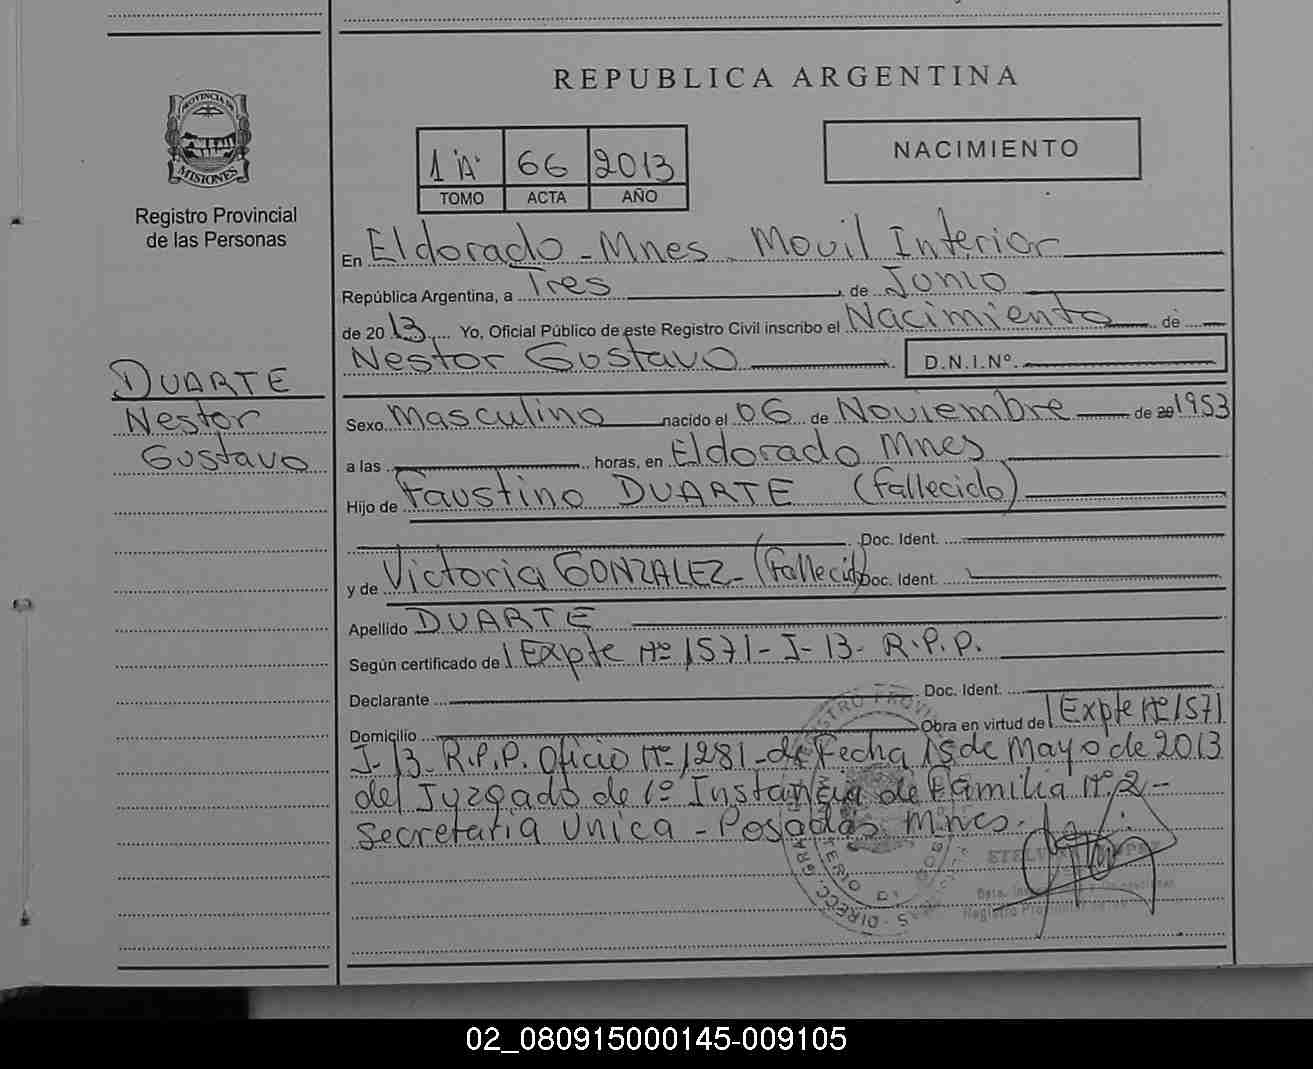 REPUBLICA ARGENTINA
PROVINCIA DE
MISIONES
Registro Provincial
de las Personas
1 "A" 66 2013
TOMO ACTA AÑO
NACIMIENTO
En Eldorado - Mnes. Movil Interior
República Argentina, a Tres de Junio
de 2013 Yo, Oficial Público de este Registro Civil inscribo el Nacimiento de
Nestor Gustavo D.N.I.Nº.
DUARTE
Nestor
Gustavo
Sexo Masculino nacido el 06 de Noviembre de 20 1953
a las horas, en Eldorado Mnes
Hijo de Faustino DUARTE (Fallecido)
Doc. Ident.
y de Victoria GONZALEZ - (Fallecid Doc. Ident.
Apellido DUARTE
Según certificado de Expte Nº 1571 - I - 13 - R.P.P.
Declarante Doc. Ident.
Domicilio Obra en virtud de Expte Nº 1571
I - 13 - R.P.P. Oficio Nº 1281 - de Fecha 15 de Mayo de 2013
del Juzgado de 1º Instancia de Familia Nº 2 -
Secretaria Unica - Posadas Mnes.
02_080915000145-009105